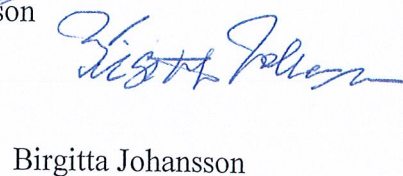 son
Birgitta Johansson
Birgitta Johansson